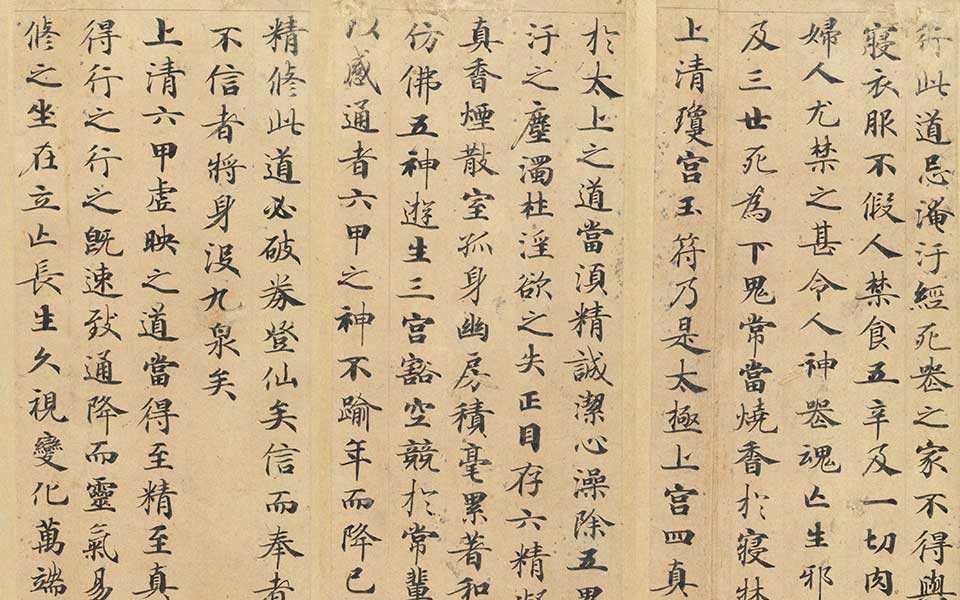 行此道忌淹汙經死喪之家不得與
寢衣服不假人禁食五辛及一切肉
婦人尤禁之甚令人神喪魂亡生邪
及三世死為下鬼常當燒香於寢牀
上清瓊宮玉符乃是太極上宮四真
於太上之道當湏精誠潔心澡除五累
汙之塵濁杜淫欲之失正目存六精凝
真香煙散室孤身幽房積毫累著和
仿佛五神遊生三宮豁空競於常輩
以感通者六甲之神不踰年而降已
精修此道必破券登仙矣信而奉者
不信者將身沒九泉矣
上清六甲虛映之道當得至精至真
得行之行之既速致通降而靈氣易
修之坐在立亡長生久視變化萬端